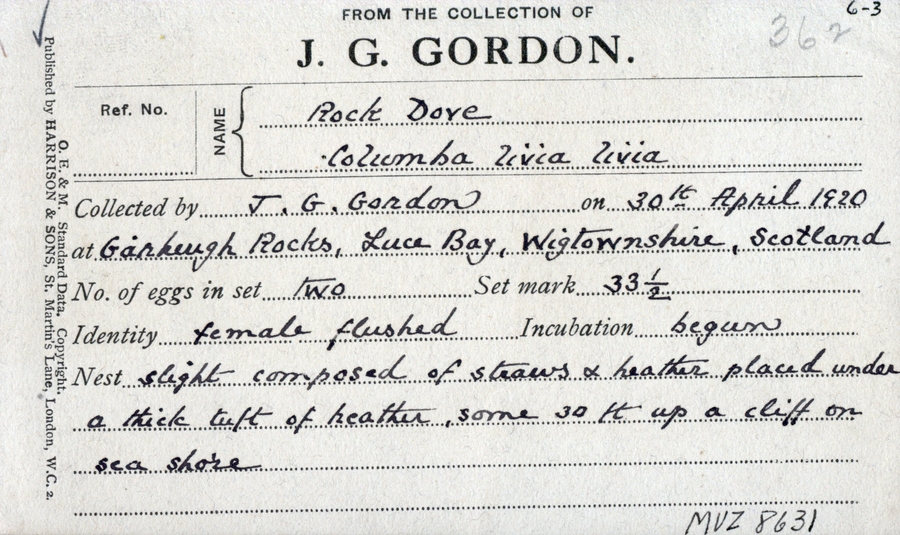 FROM THE COLLECTION OF
6-3
362
J. G. GORDON.
Ref. No.
NAME
Rock Dove
Columba livia livia
Collected by J. G. Gordon on 30th April 1920
at Garheugh Rocks, Luce Bay, Wigtownshire, Scotland
No. of eggs in set two Set mark 33 1/2
Identity female flushed Incubation begun
Nest slight composed of straws & heather placed under
a thick tuft of heather, some 30 ft up a cliff on
sea shore
MVZ 8631
O. E. & M. Standard Data. Copyright.
Published by HARRISON & SONS, St. Martin's Lane, London, W.C. 2.